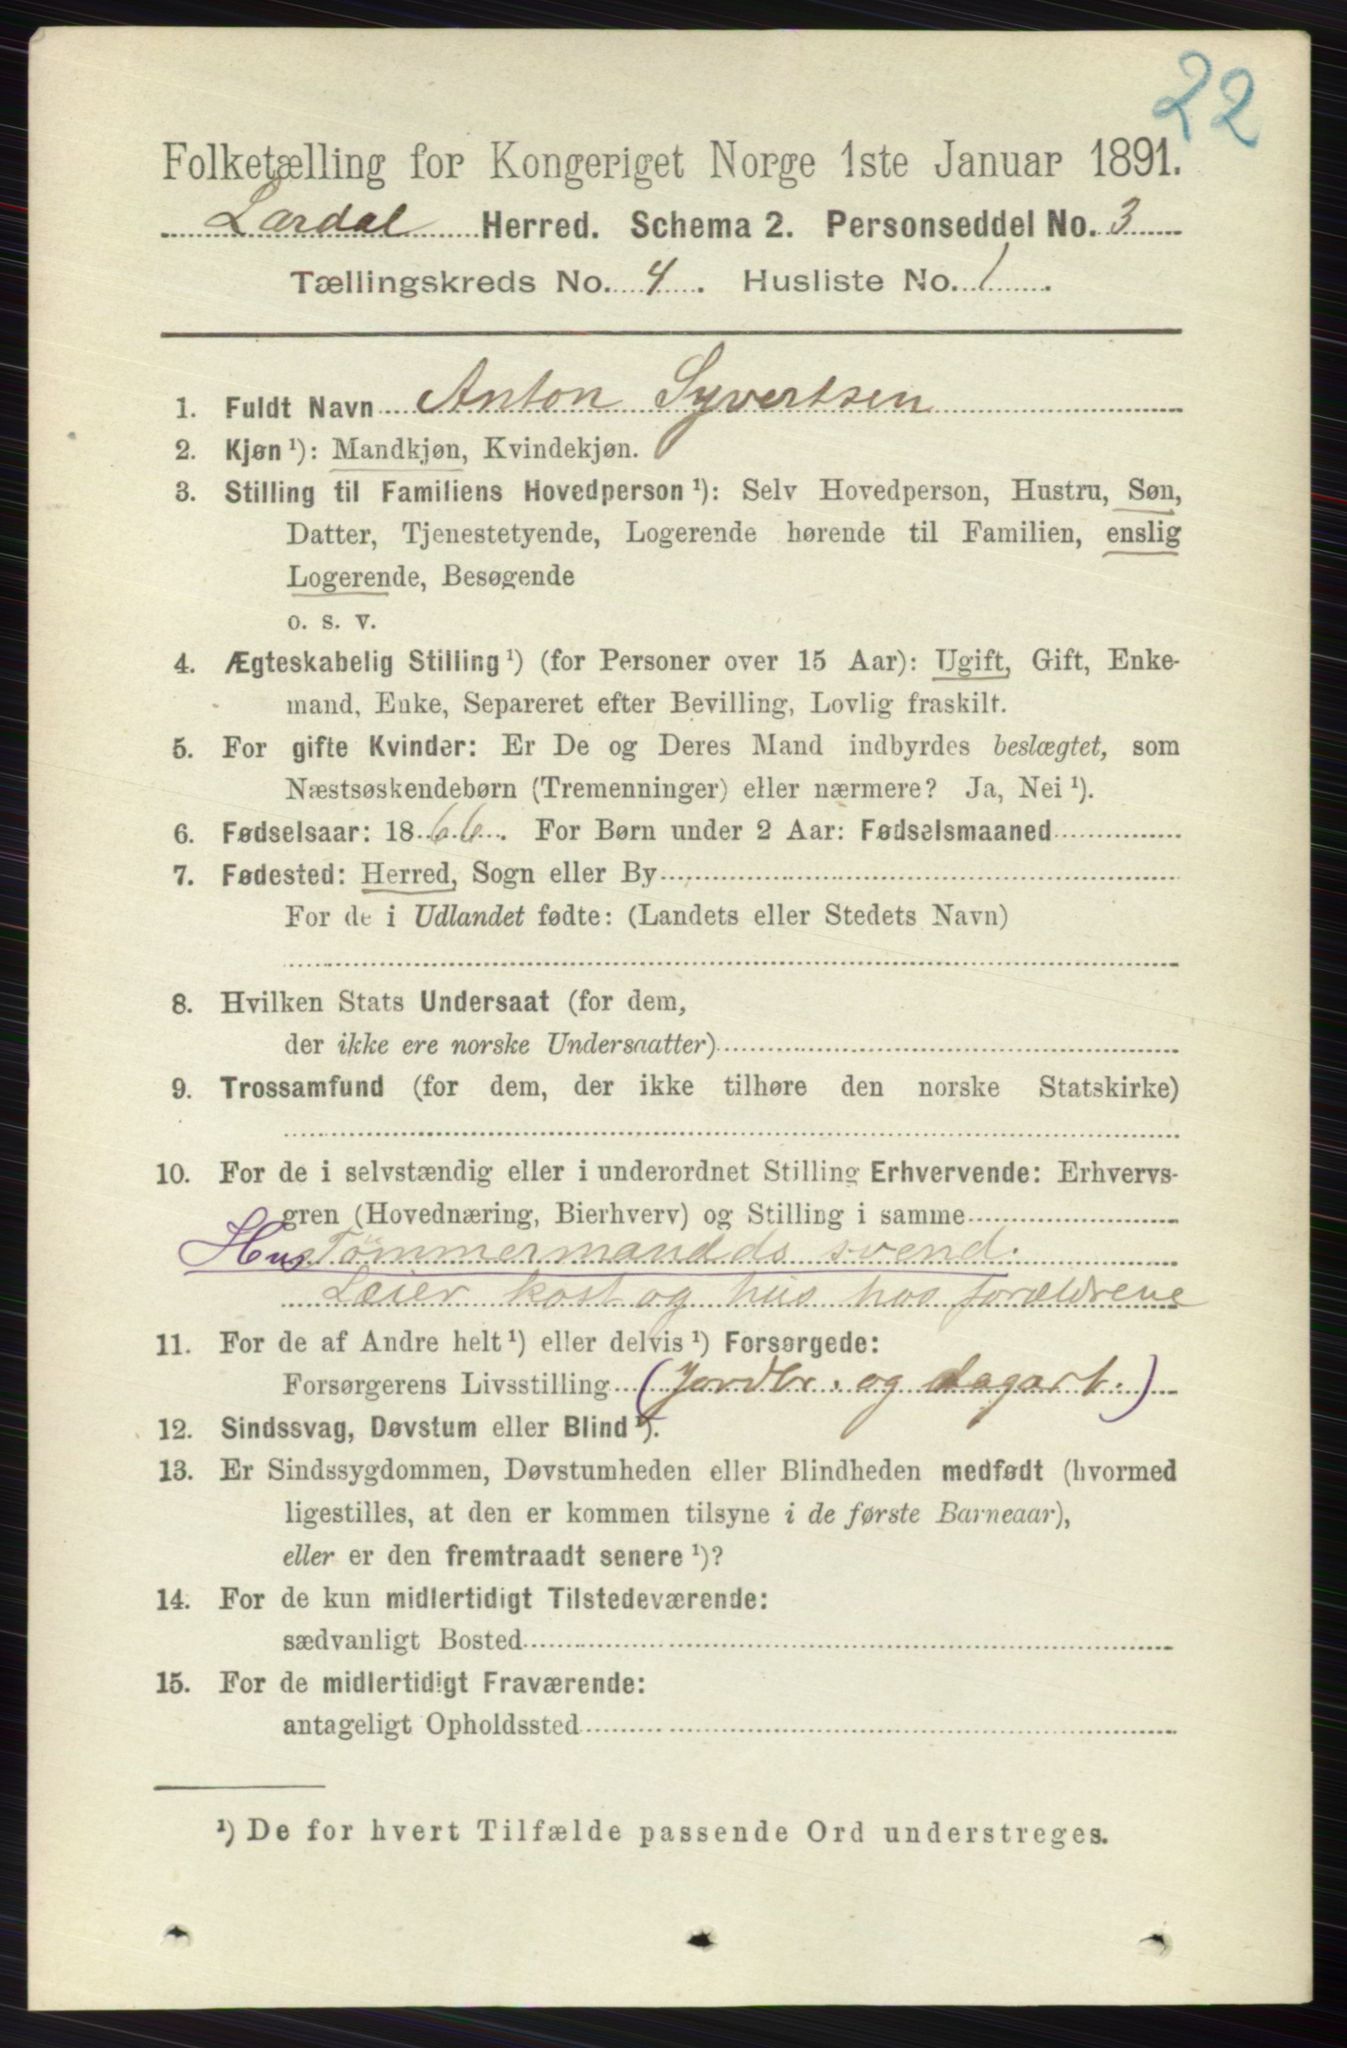 22
Folketælling for Kongeriget Norge 1ste Januar 1891.
Lardal Herred. Schema 2. Personseddel No. 3
Tællingskreds No. 4. Husliste No. 1.
1. Fuldt Navn Anton Syvertsen
2. Kjøn ¹): Mandkjøn, Kvindekjøn.
3. Stilling til Familiens Hovedperson ¹): Selv Hovedperson, Hustru, Søn,
Datter, Tjenestetyende, Logerende hørende til Familien, enslig
Logerende, Besøgende
o. s. v.
4. Ægteskabelig Stilling ¹) (for Personer over 15 Aar): Ugift, Gift, Enke-
mand, Enke, Separeret efter Bevilling, Lovlig fraskilt.
5. For gifte Kvinder: Er De og Deres Mand indbyrdes beslægtet, som
Næstsøskendebørn (Tremenninger) eller nærmere? Ja, Nei ¹).
6. Fødselsaar: 1866. For Børn under 2 Aar: Fødselsmaaned
7. Fødested: Herred, Sogn eller By
For de i Udlandet fødte: (Landets eller Stedets Navn)
8. Hvilken Stats Undersaat (for dem,
der ikke ere norske Undersaatter)
9. Trossamfund (for dem, der ikke tilhøre den norske Statskirke)
10. For de i selvstændig eller i underordnet Stilling Erhvervende: Erhvervs-
gren (Hovednæring, Bierhverv) og Stilling i samme
Hus Tømmermandds svend.
Leier kost og hus hos forældrene
11. For de af Andre helt ¹) eller delvis ¹) Forsørgede:
Forsørgerens Livsstilling (Jordbr. og dagarb.)
12. Sindssvag, Døvstum eller Blind ¹).
13. Er Sindssygdommen, Døvstumheden eller Blindheden medfødt (hvormed
ligestilles, at den er kommen tilsyne i de første Barneaar),
eller er den fremtraadt senere ¹)?
14. For de kun midlertidigt Tilstedeværende:
sædvanligt Bosted
15. For de midlertidigt Fraværende:
antageligt Opholdssted
¹) De for hvert Tilfælde passende Ord understreges.